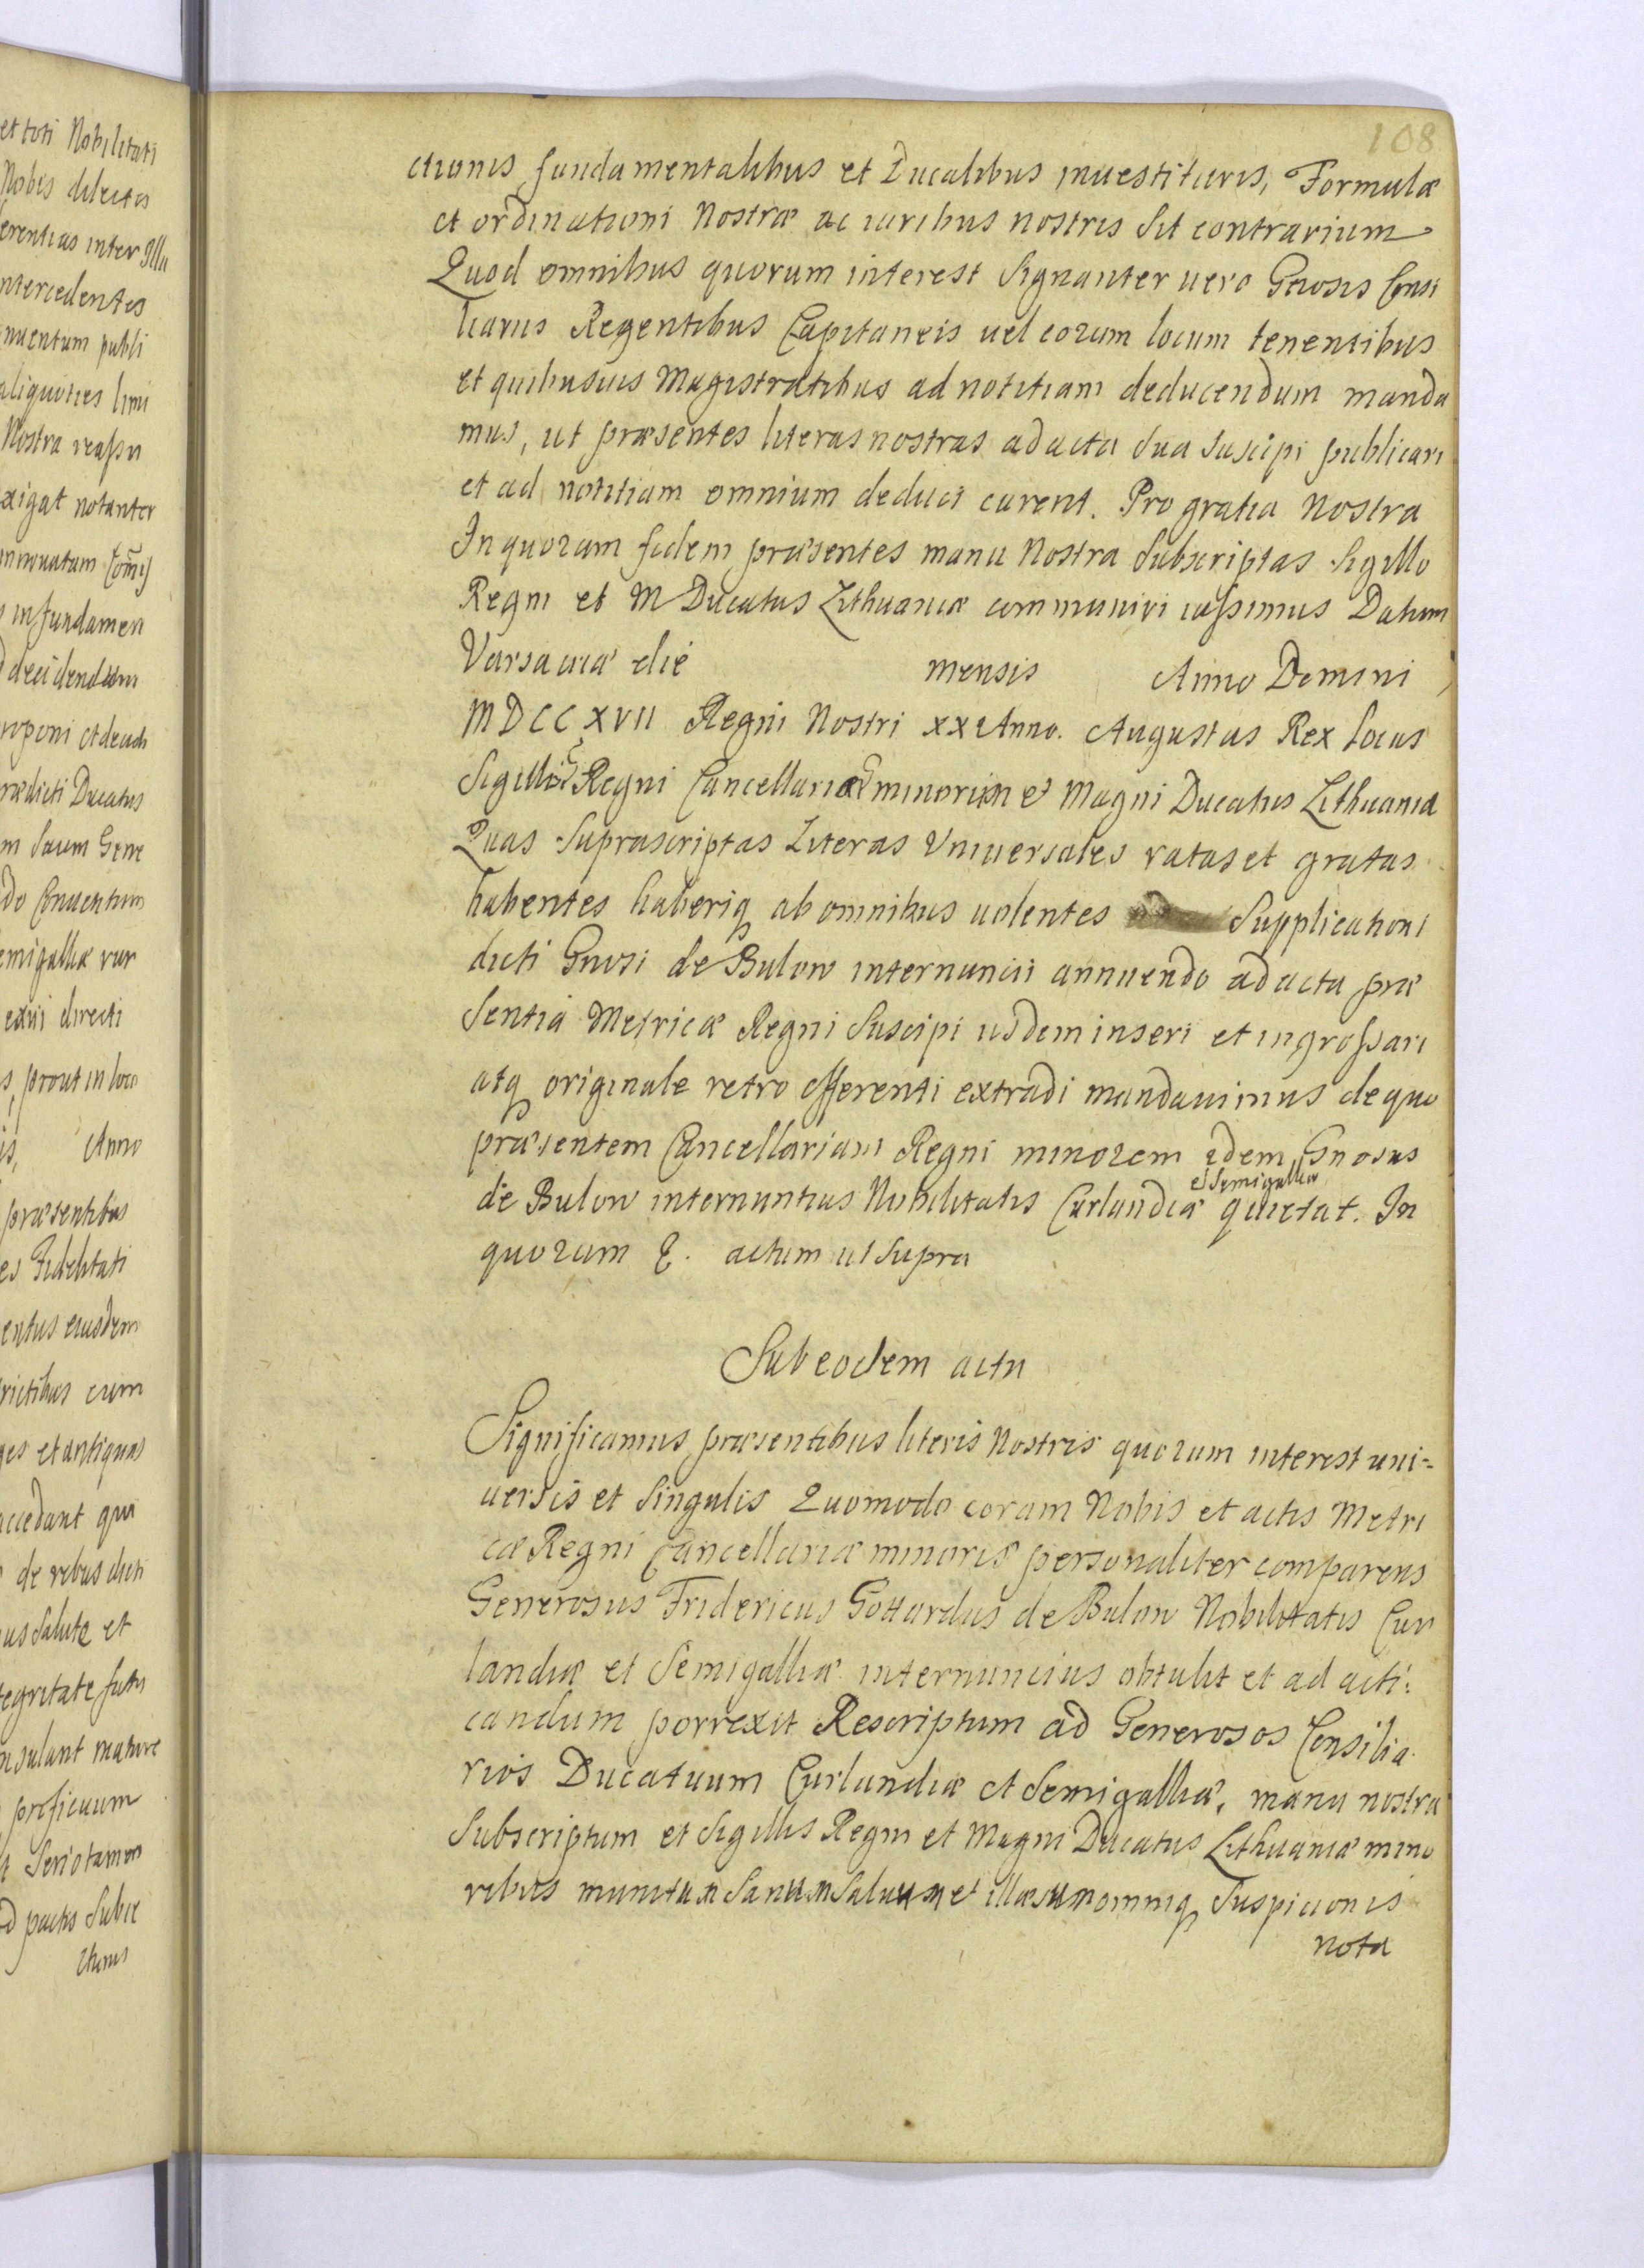 108
ctionis fundamentalibus et Ducalibus inuestituris, Formulæ
et ordinationi Nostræ ac iuribus nostris sit contrarium
Quod omnibus quorum interest signanter uero Gnosis Consi
liariis Regentibus Capitaneis uel eorum locum tenentibus
et quibusuis Magistratibus ad notitiam deducendum manda
mus, ut præsentes literas nostras ad acta sua suscipi publicari
et ad notitiam omnium deduci curent. Pro gratia Nostra
In quorum fidem præsentes manu Nostra subscriptas Sigillo
Regni et M Ducatus Lithuaniæ communiri iussimus Datum
Varsauiæ die mensis Anno Domini
MDCCXVII Regni Nostri XX Anno. Augustus Rex Locus
Sigilli Regni Cancellariæ minorum et Magni Ducatus Lithuaniæ
Quas Suprascriptas Literas Vniuersales ratas et gratas
habentes haberiq ab omnibus uolentes Supplicationi
dicti Gnosi de Bulow internuncii annuendo ad acta præ
sentia Metricæ Regni Suscipi iisdem inseri et ingrossari
atq originale retro offerenti extradi mandauimus de quo
præsentem Cancellariam Regni minorem idem Gnosus
et Semigalliæ
de Bulow internuntius Nobilitatis Curlandiæ quietat. In
quorum &. actum ut supra
Sub eodem actu
Significamus præsentibus literis Nostris quorum interest uni-
uersis et singulis Quomodo coram Nobis et actis Metri
cæ Regni Cancellariæ minoris personaliter comparens
Generosus Fridericus Gottardus de Bulow Nobilitatis Cur
landiæ et Semigalliæ internuncius obtulit et ad acti:
candum porrexit Rescriptum ad Generosos Consilia
rios Ducatuum Curlandiæ et Semigalliæ, manu nostra
Subscriptum et Sigillis Regni et Magni Ducatus Lithuaniæ mino
ribus munitum Sanum Saluum et illæsum omniq Suspicionis
nota
et toti Nobilitati
Nobis dilectis
erentias inter Illu
ntercedentes
nuentum publi
aliquoties limi
Nostra reassu
xigat notanter
in fundamen
decidendum
roponi et deudi
rædicti Ducatus
m suum Gene
do Conuentum
emigalliæ rur
directi
s, prout in loco
is, Anno
præsentibus
es Fidelitati
entus eiusdem
rictibus cum
ges et antiquas
accedant qui
de rebus dicti
us Salute et
tegritate
nsulant mature
proficuum
Serio tamen
d pactis Subie
ctionis